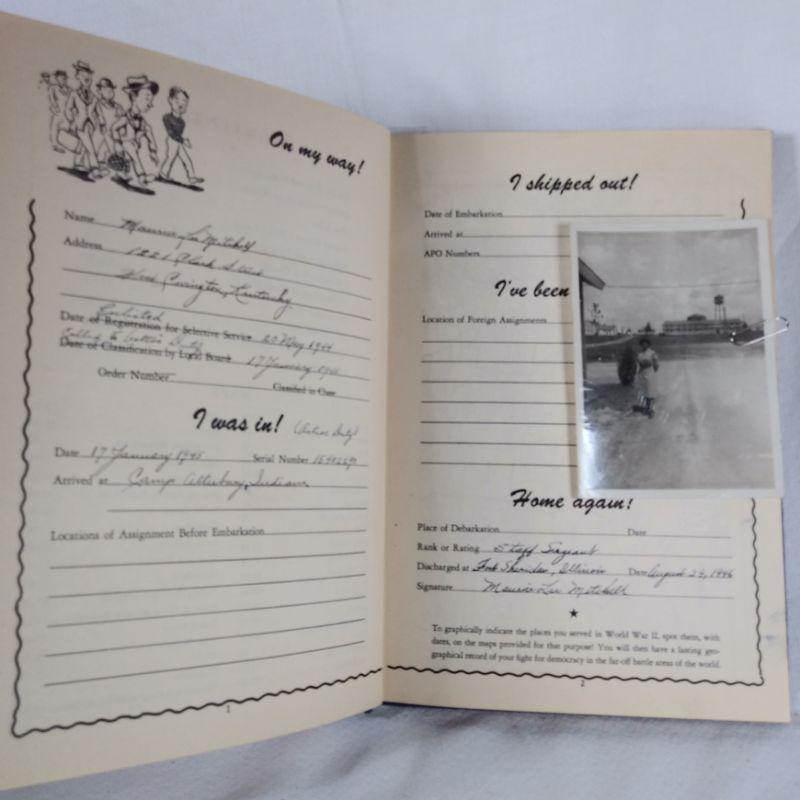 On my way!
Name Maurice Lee Mitchell
Address 1221 Clark Street
West Covington, Kentucky
Enlisted
Date of Registration for Selective Service 20 May 1944
Called to Active Duty
Date of Classification by Local Board 17 January 1945
Order Number Classified in Class
I was in! (Active Duty)
Date 17 January 1945 Serial Number
Arrived at Camp Atterbury, Indiana
Locations of Assignment Before Embarkation
1
I shipped out!
Date of Embarkation
Arrived at
APO Numbers
I've been
Location of Foreign Assignments
Home again!
Place of Debarkation Date
Rank or Rating Staff Sergeant
Discharged at Fort Sheridan, Illinois Date August 29, 1946
Signature Maurice Lee Mitchell
To graphically indicate the places you served in World War II, spot them, with
dates, on the maps provided for that purpose! You will then have a lasting geo-
graphical record of your fight for democracy in the far-off battle areas of the world.
2